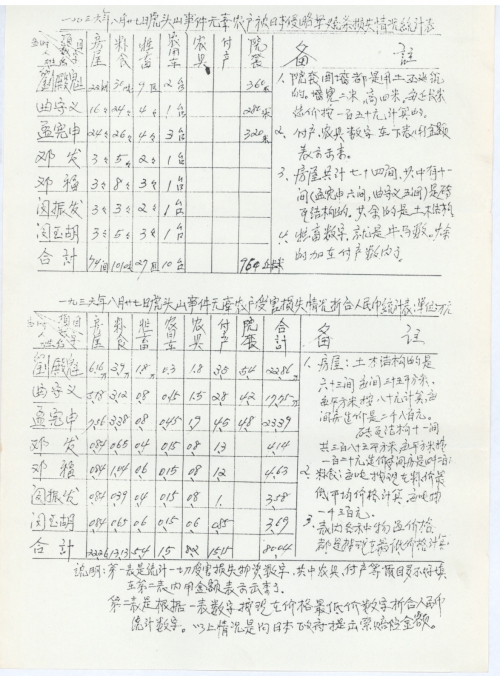 一九三六年八月廿七日虎头山事件元套农户被日本侵略军烧杀损失情况统计表
项目 房屋 粮食 牲畜 农用车 农具 付产 院套 备 註
劉殿魁 31石 9頭 2台 360米
曲字义 16〃 24〃 4〃 1台 280米
孟宪申 24〃 26〃 4〃 3台 320米
邓 发 3〃 5〃 2〃 1台
邓 福 3〃 8〃 3〃 1台
闵振发 3〃 3〃 2〃 1台
闵玉胡 3〃 5〃 3〃 1台
合 計 10台
1、院套围墙都是用土
的。墙宽二米,高四米。每延长米
估价按一百五十元计算的。
2、付产、农具数字在下表用金额
表示出来。
3、房屋共计七十四间,其中有十一
间(孟宪申六间,曲字义五间)是砖
瓦结构的。其余的是土木结构
4、牲畜数字,就是牛马数。其余
的加在付产数内了。
一九三六年八月廿七日虎头山事件元套农户受害损失情况折合人民币统计表:单位万元
项目 房屋 粮食 牲畜 农用车 农具 付产 院套 合計 备 註
劉殿魁 6.16万 3.9万 1.8万 0.3 1.8 3.5 5.4 22.86
曲字义 3.12 0.8 0.15 1.5 2.8 4.2
孟宪申 3.38 0.8 0.45 1.9 4.5 4.8 23.39
邓 发 0.84 0.65 0.4 0.15 0.8 1.3 4.14
邓 福 0.84 1.04 0.6 0.15 0.8 1.2 4.63
闵振发 0.84 0.39 0.4 0.15 0.8 1. 3.58
闵玉胡 0.84 0.65 0.6 0.15 0.6 0.85 3.69
合 計 13.13 5.4 1.5 8.2 15.15 80.04
1、房屋:土木结构的是
六十三间 每间三十五平方米,
每平方米按八十元计算,每
间房造价是二千八百元。
砖瓦结构十一间
共三百八十五平方米,每平方米按
一百二十元
2、粮食:每吨按现在粮价最
低平均价格计算,每吨按
一千三百元。
3、表内各种物品价格
都是按现在最低价格计算。
说明:第一表是统计一切受害损失物资数字,其中农具、付产等项目
在第二表内用金额表示出来了。
第二表是根据一表数字按现在价格最低价数字折合人民币
统计数字。以上情况是向日本政府提出索赔的金额。